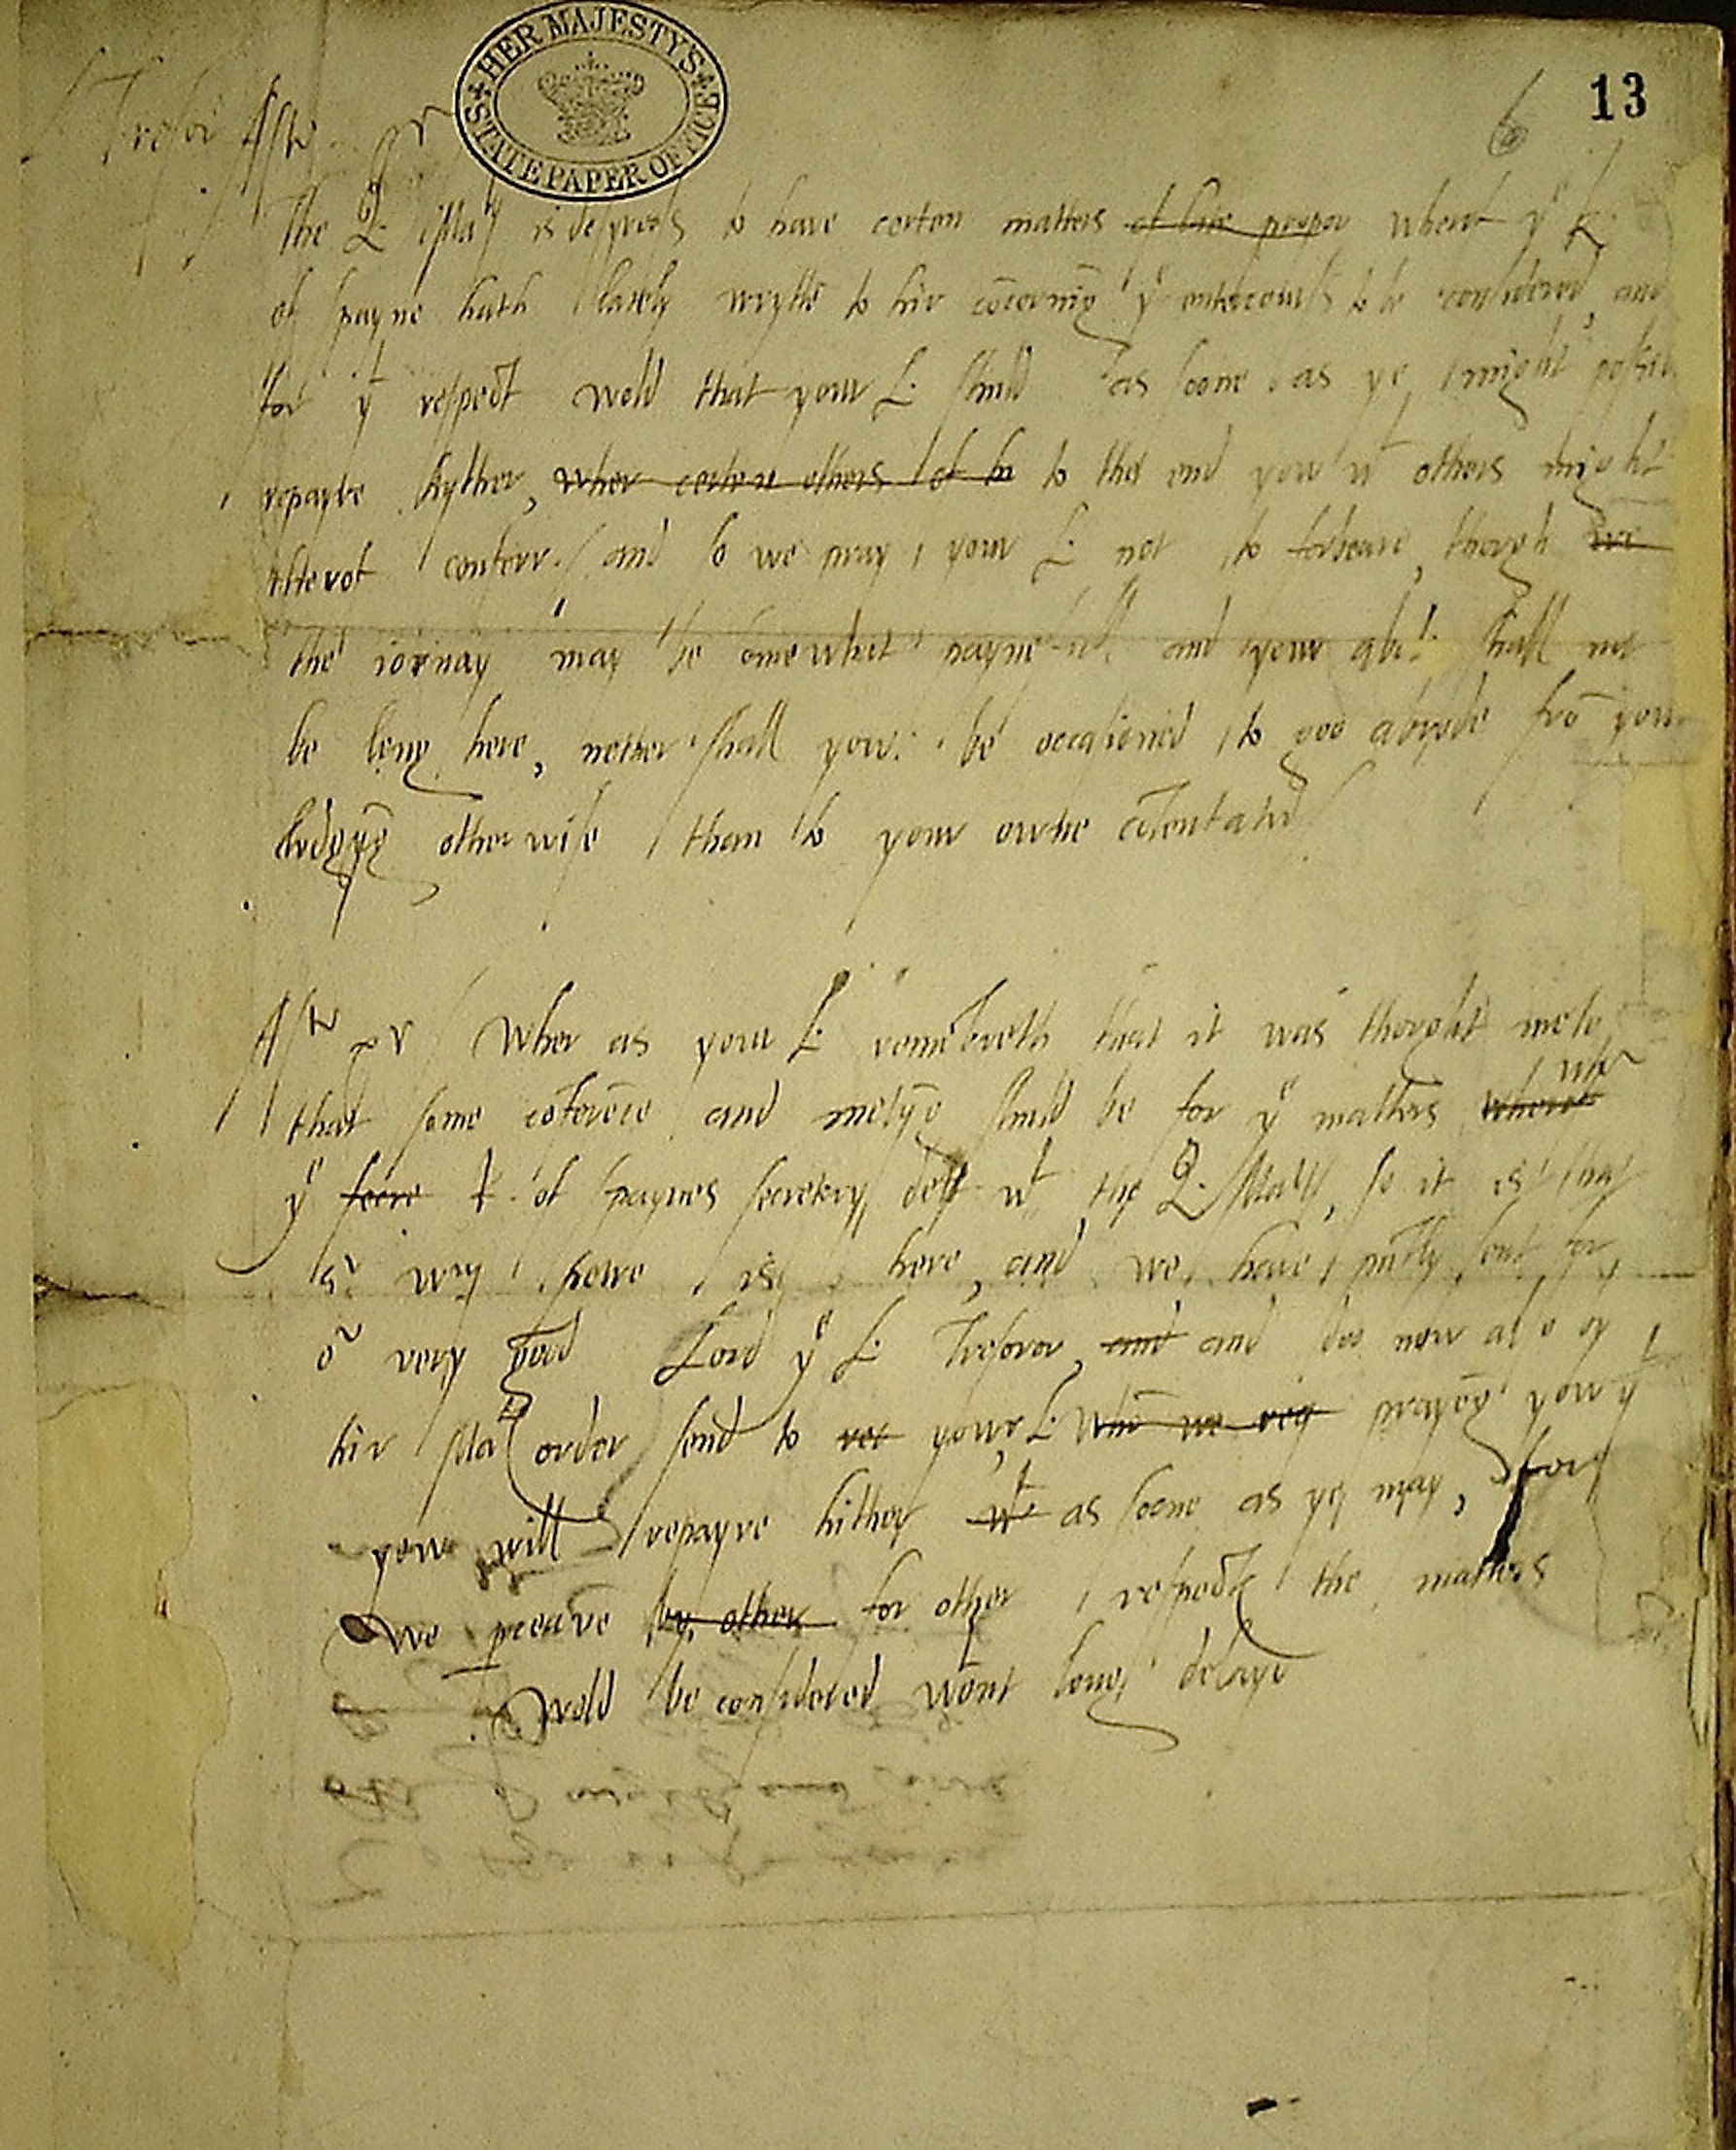 HER MAJESTY'S STATE PAPER OFFICE
13
6
L Tresor Aftr
The Q. Maty is desyroos to have certen matters of late propo wherof ye K.
of spayne hath lately wrytte to hir cōcernīg ye entercours to be considered, and
for yt respect wold that your L. shuld as soone as ye might possib
repayre hyther, wher certen others of hir to the end you wt others might
therof conferr. / and so we pray your L. not to forbeare, though we
the iornay may be somewhat paynefull and your abod shall not
be long here, nether shall you be occasioned to goo abrode frō your
lodgyg otherwise than to your owne cōtentatiō
Aftr Wher as your L. remēbreth that it was thought mete
that some cōferēce and metyg shuld be for ye matters wherof wch
ye secre K. of spaynes secretary delt wt the Q. Maty, so it is that
Sr Wm petre is here, and we have prtly sent for
or very good Lord ye L. Tresoror, and and doo now also by
hir Matys order send to yor your L. whō we req prayeg you yt
you will repayre hither wt as soone as ye may, for
we preave by other for other respects the matters
wold be considered wtout long delaye